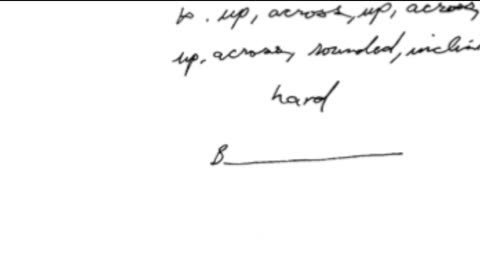 b. up, across, up, across
up, across, rounded, incline
hard
B